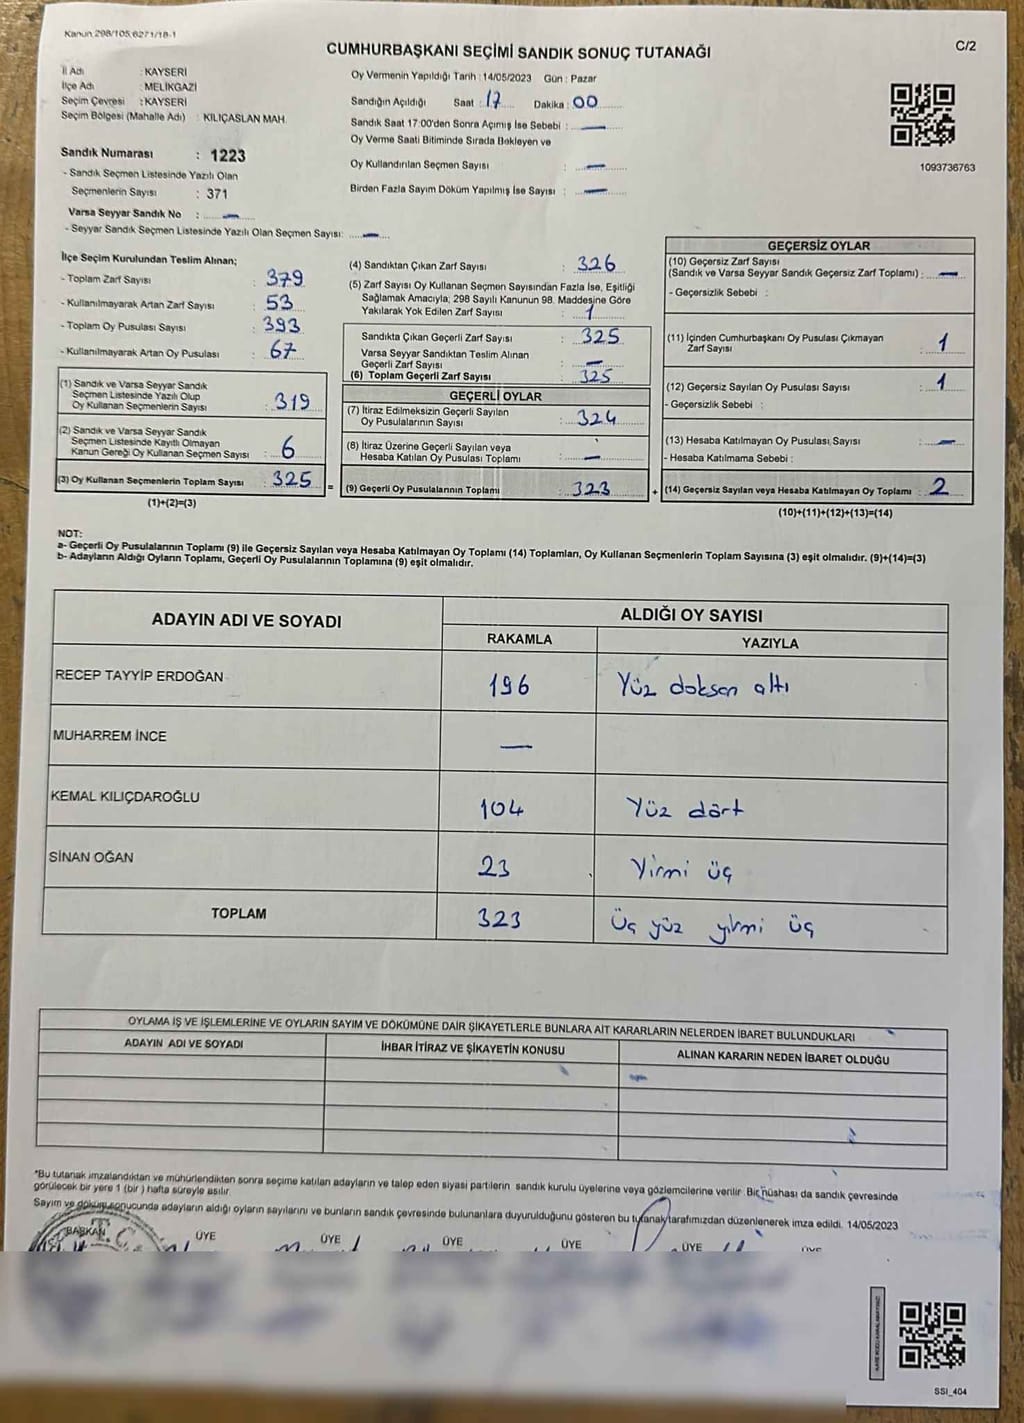 Kanun 298/105,6271/18-1
C/2
CUMHURBAŞKANI SEÇİMİ SANDIK SONUÇ TUTANAĞI
İl Adı : KAYSERİ
İlçe Adı : MELİKGAZİ
Seçim Çevresi : KAYSERİ
Seçim Bölgesi (Mahalle Adı) : KILIÇASLAN MAH.
Sandık Numarası : 1223
- Sandık Seçmen Listesinde Yazılı Olan
Seçmenlerin Sayısı : 371
Varsa Seyyar Sandık No : —
- Seyyar Sandık Seçmen Listesinde Yazılı Olan Seçmen Sayısı: —
Oy Vermenin Yapıldığı Tarih : 14/05/2023 Gün : Pazar
Sandığın Açıldığı Saat : 17 Dakika : 00
Sandık Saat 17:00'den Sonra Açımış İse Sebebi : —
Oy Verme Saati Bitiminde Sırada Bekleyen ve
Oy Kullandırılan Seçmen Sayısı : —
Birden Fazla Sayım Döküm Yapılmış İse Sayısı : —
1093736763
İlçe Seçim Kurulundan Teslim Alınan;
- Toplam Zarf Sayısı : 379
- Kullanılmayarak Artan Zarf Sayısı : 53
- Toplam Oy Pusulası Sayısı : 393
- Kullanılmayarak Artan Oy Pusulası : 67
(1) Sandık ve Varsa Seyyar Sandık
Seçmen Listesinde Yazılı Olup
Oy Kullanan Seçmenlerin Sayısı : 319
(2) Sandık ve Varsa Seyyar Sandık
Seçmen Listesinde Kayıtlı Olmayan
Kanun Gereği Oy Kullanan Seçmen Sayısı : 6
(3) Oy Kullanan Seçmenlerin Toplam Sayısı : 325 =
(1)+(2)=(3)
(4) Sandıktan Çıkan Zarf Sayısı : 326
(5) Zarf Sayısı Oy Kullanan Seçmen Sayısından Fazla İse, Eşitliği
Sağlamak Amacıyla; 298 Sayılı Kanunun 98. Maddesine Göre
Yakılarak Yok Edilen Zarf Sayısı : 1
Sandıkta Çıkan Geçerli Zarf Sayısı : 325
Varsa Seyyar Sandıktan Teslim Alınan
Geçerli Zarf Sayısı : —
(6) Toplam Geçerli Zarf Sayısı : 325
GEÇERLİ OYLAR
(7) İtiraz Edilmeksizin Geçerli Sayılan
Oy Pusulalarının Sayısı : 324
(8) İtiraz Üzerine Geçerli Sayılan veya
Hesaba Katılan Oy Pusulası Toplamı : —
(9) Geçerli Oy Pusulalarının Toplamı : 323 +
GEÇERSİZ OYLAR
(10) Geçersiz Zarf Sayısı
(Sandık ve Varsa Seyyar Sandık Geçersiz Zarf Toplamı) : —
- Geçersizlik Sebebi :
(11) İçinden Cumhurbaşkanı Oy Pusulası Çıkmayan
Zarf Sayısı : 1
(12) Geçersiz Sayılan Oy Pusulası Sayısı : 1
- Geçersizlik Sebebi :
(13) Hesaba Katılmayan Oy Pusulası Sayısı : —
- Hesaba Katılmama Sebebi :
(14) Geçersiz Sayılan veya Hesaba Katılmayan Oy Toplamı : 2
(10)+(11)+(12)+(13)=(14)
NOT:
a- Geçerli Oy Pusulalarının Toplamı (9) ile Geçersiz Sayılan veya Hesaba Katılmayan Oy Toplamı (14) Toplamları, Oy Kullanan Seçmenlerin Toplam Sayısına (3) eşit olmalıdır. (9)+(14)=(3)
b- Adayların Aldığı Oyların Toplamı, Geçerli Oy Pusulalarının Toplamına (9) eşit olmalıdır.
ADAYIN ADI VE SOYADI ALDIĞI OY SAYISI
RAKAMLA YAZIYLA
RECEP TAYYİP ERDOĞAN 196 Yüz doksan altı
MUHARREM İNCE —
KEMAL KILIÇDAROĞLU 104 Yüz dört
SİNAN OĞAN 23 Yirmi üç
TOPLAM 323 Üç yüz yirmi üç
OYLAMA İŞ VE İŞLEMLERİNE VE OYLARIN SAYIM VE DÖKÜMÜNE DAİR ŞİKAYETLERLE BUNLARA AİT KARARLARIN NELERDEN İBARET BULUNDUKLARI
ADAYIN ADI VE SOYADI İHBAR İTİRAZ VE ŞİKAYETİN KONUSU ALINAN KARARIN NEDEN İBARET OLDUĞU
*Bu tutanak imzalandıktan ve mühürlendikten sonra seçime katılan adayların ve talep eden siyasi partilerin sandık kurulu üyelerine veya gözlemcilerine verilir. Bir nüshası da sandık çevresinde
görülecek bir yere 1 (bir) hafta süreyle asılır.
Sayım ve döküm sonucunda adayların aldığı oyların sayılarını ve bunların sandık çevresinde bulunanlara duyurulduğunu gösteren bu tutanak tarafımızdan düzenlenerek imza edildi. 14/05/2023
BAŞKAN ÜYE ÜYE ÜYE ÜYE ÜYE ÜYE
T.C.
SSI_404